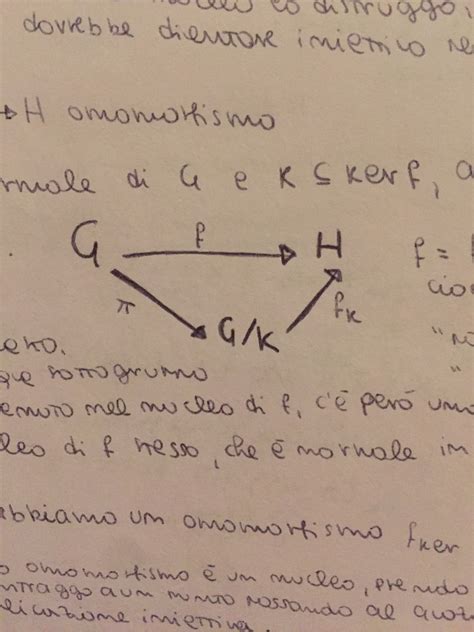 nucleo lo distruggo,
dovrebbe dientare iniettivo
H omomorfismo
rmale di G e K ⊆ Ker f, a
G f H f =
π G/K f_K cio
eno.
que sottogruppo
enuto nel nucleo di f, c'è però uno
leo di f stesso, che è normale in
abbiamo un omomorfismo f_Ker
o omomorfismo è un nucleo, prendo
ntraggo a un punto passando al quoz
licazione iniettiva.